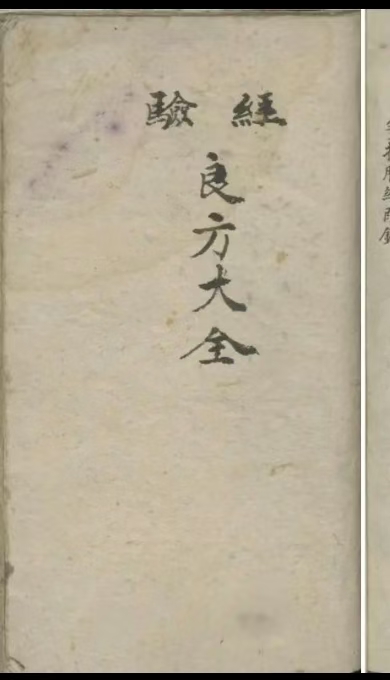 經驗
良方大全